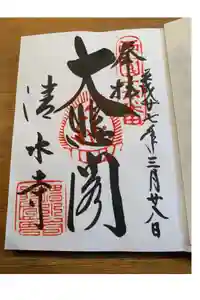 奉拝
平成廿七年三月廿八日
大悲閣
清水寺